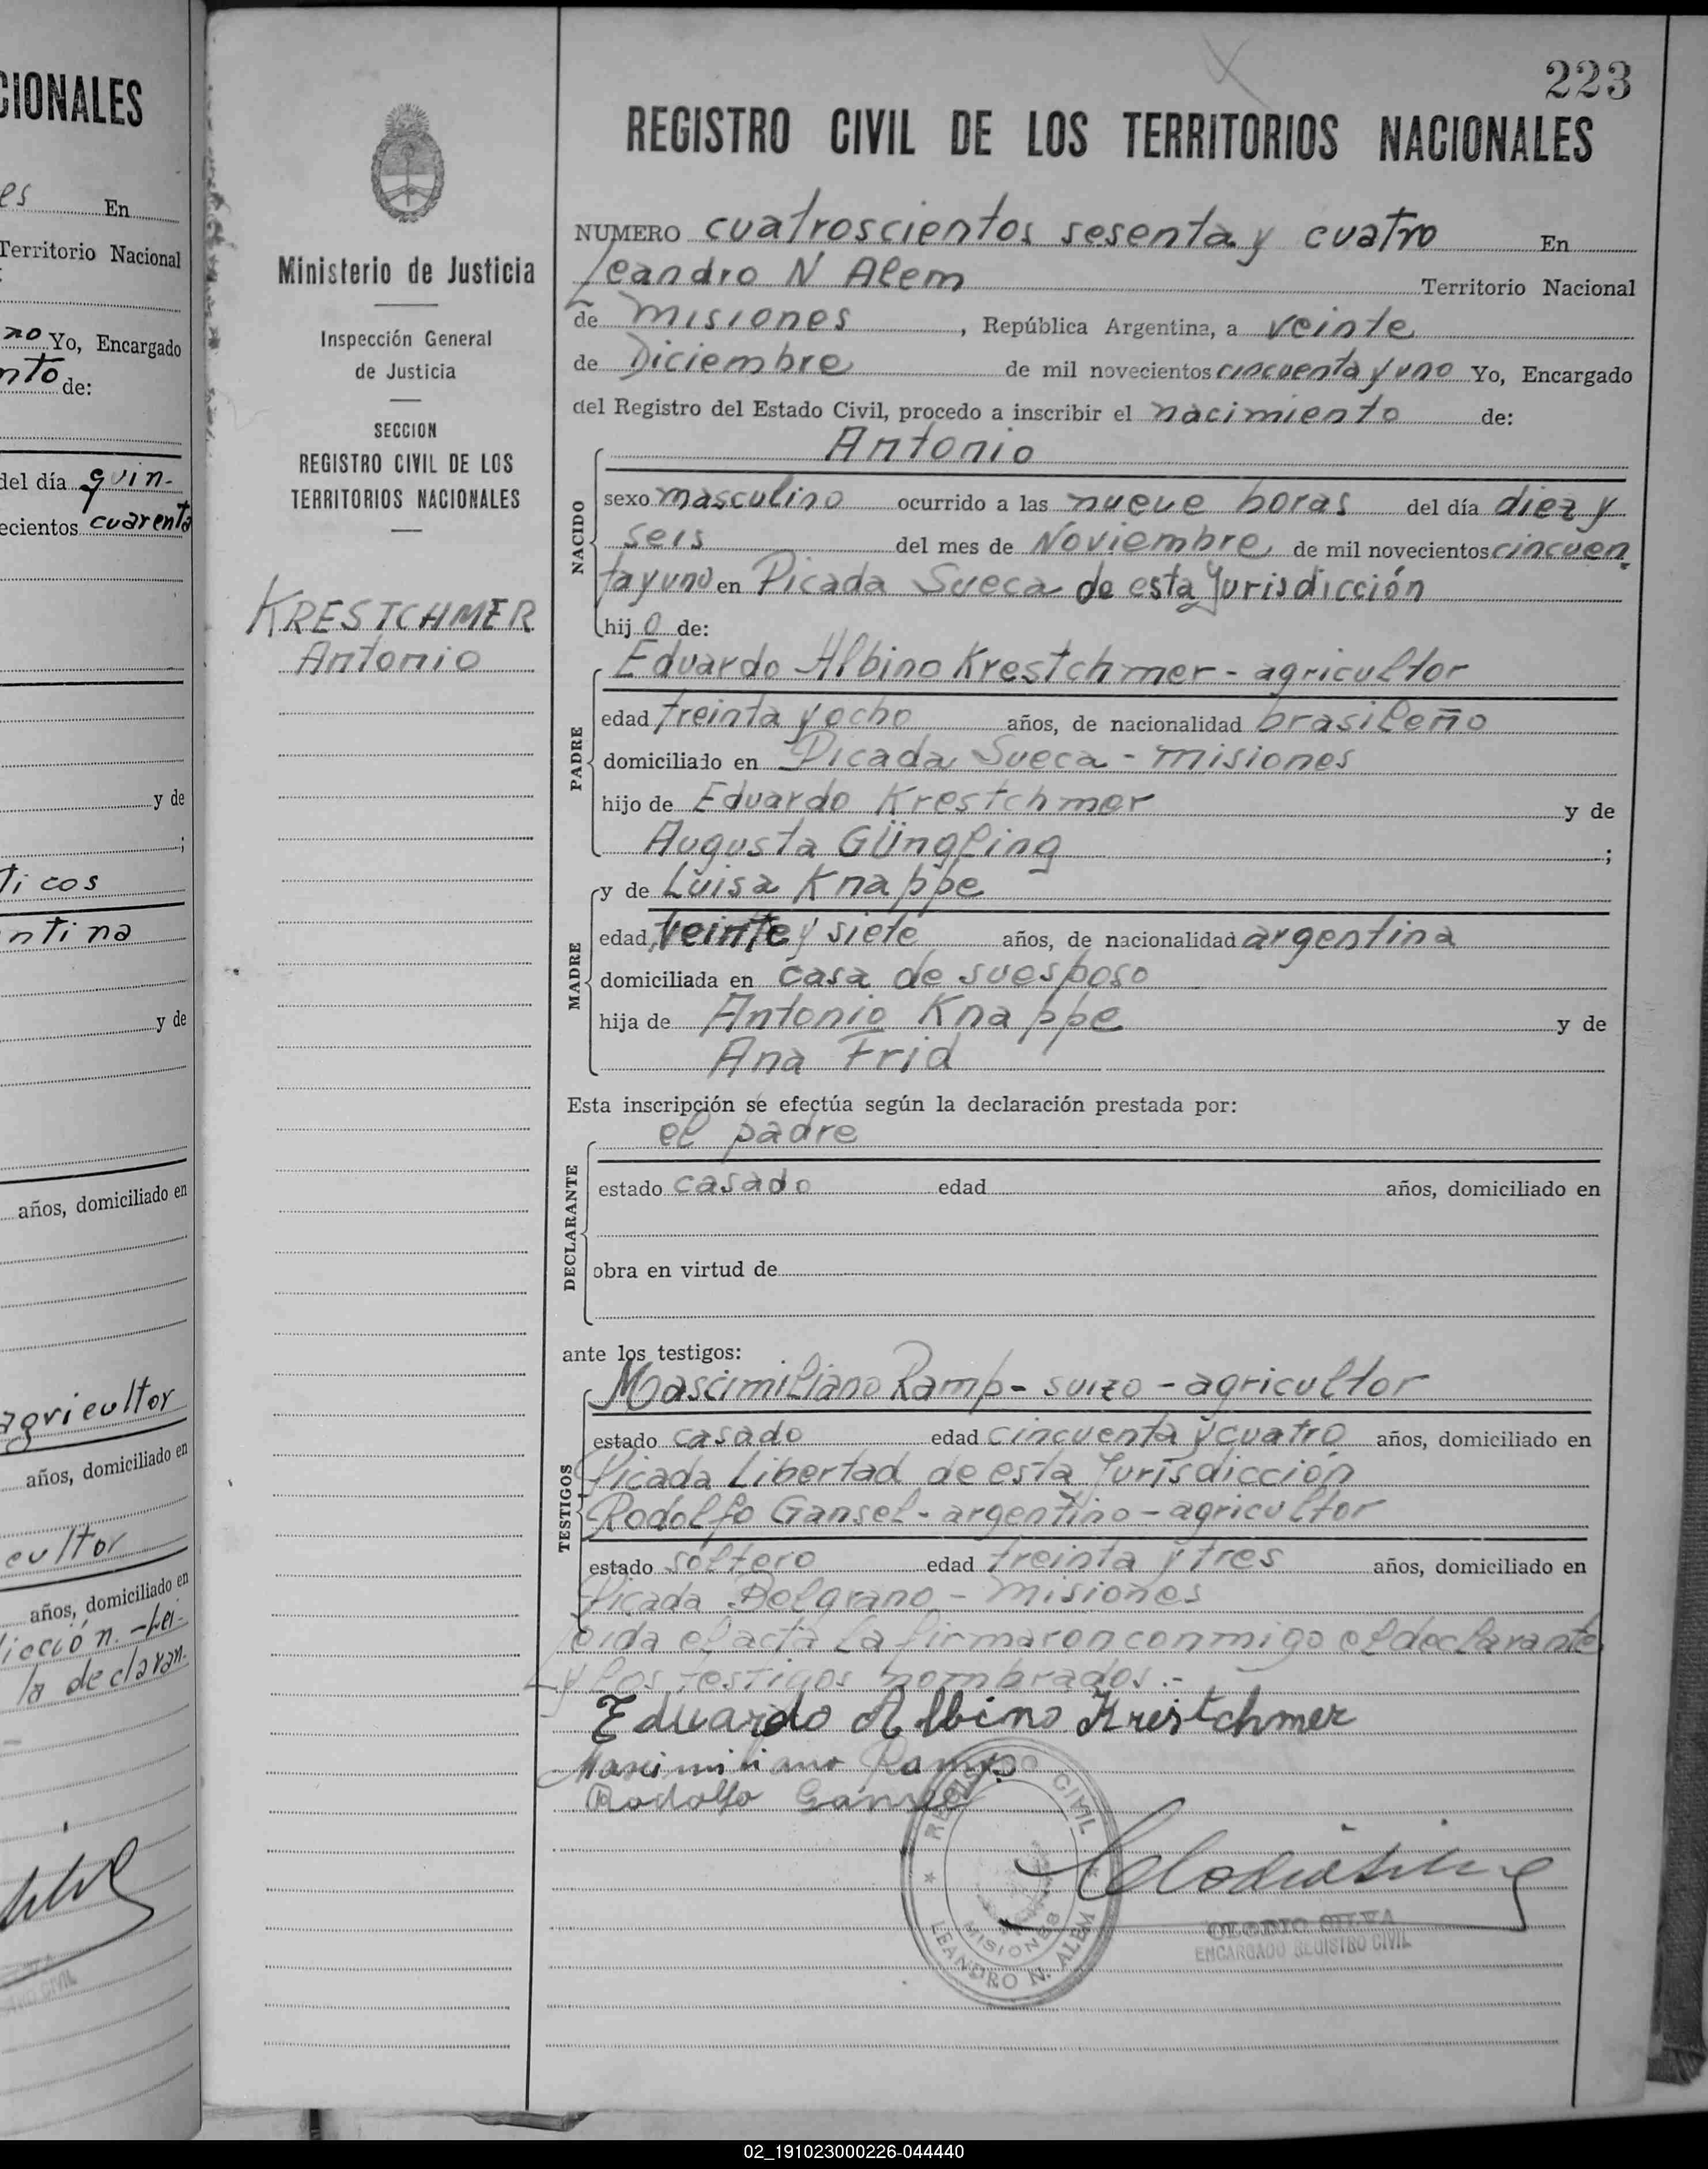 CIONALES
es En
Territorio Nacional
no Yo, Encargado
nto de:
del día quin-
ecientos cuarenta
y de
;
ticos
ntina
y de
años, domiciliado en
agricultor
años, domiciliado en
cultor
años, domiciliado en
dicción.-Leí-
la declaran-
223
REGISTRO CIVIL DE LOS TERRITORIOS NACIONALES
Ministerio de Justicia
Inspección General
de Justicia
SECCION
REGISTRO CIVIL DE LOS
TERRITORIOS NACIONALES
KRESTCHMER
Antonio
NUMERO cuatroscientos sesenta y cuatro En
Leandro N Alem Territorio Nacional
de Misiones, República Argentina, a veinte
de Diciembre de mil novecientos cincuenta y uno Yo, Encargado
del Registro del Estado Civil, procedo a inscribir el nacimiento de:
NACIDO
Antonio
sexo masculino ocurrido a las nueve horas del día diez y
seis del mes de Noviembre de mil novecientos cincuen
ta y uno en Picada Sueca de esta Jurisdicción
hijo de:
PADRE
Eduardo Albino Krestchmer - agricultor
edad treinta y ocho años, de nacionalidad brasileño
domiciliado en Picada Sueca - Misiones
hijo de Eduardo Krestchmer y de
Augusta Güngling ;
MADRE
y de Luisa Knappe
edad veinte y siete años, de nacionalidad argentina
domiciliada en casa de su esposo
hija de Antonio Knappe y de
Ana Frid
Esta inscripción se efectúa según la declaración prestada por:
DECLARANTE
el padre
estado casado edad años, domiciliado en
obra en virtud de
ante los testigos:
TESTIGOS
Mascimiliano Ramp - suizo - agricultor
estado casado edad cincuenta y cuatro años, domiciliado en
Picada Libertad de esta Jurisdicción
Rodolfo Gansel - argentino - agricultor
estado soltero edad treinta y tres años, domiciliado en
Picada Belgrano - Misiones
Leída el acta la firmaron conmigo el declarante
y los testigos nombrados.-
Eduardo Albino Krestchmer
Maximiliano Ramp
Rodolfo Gansel
REGISTRO CIVIL
MISIONES
LEANDRO N. ALEM
Clodio Silva
CLODIO SILVA
ENCARGADO REGISTRO CIVIL
02_191023000226-044440